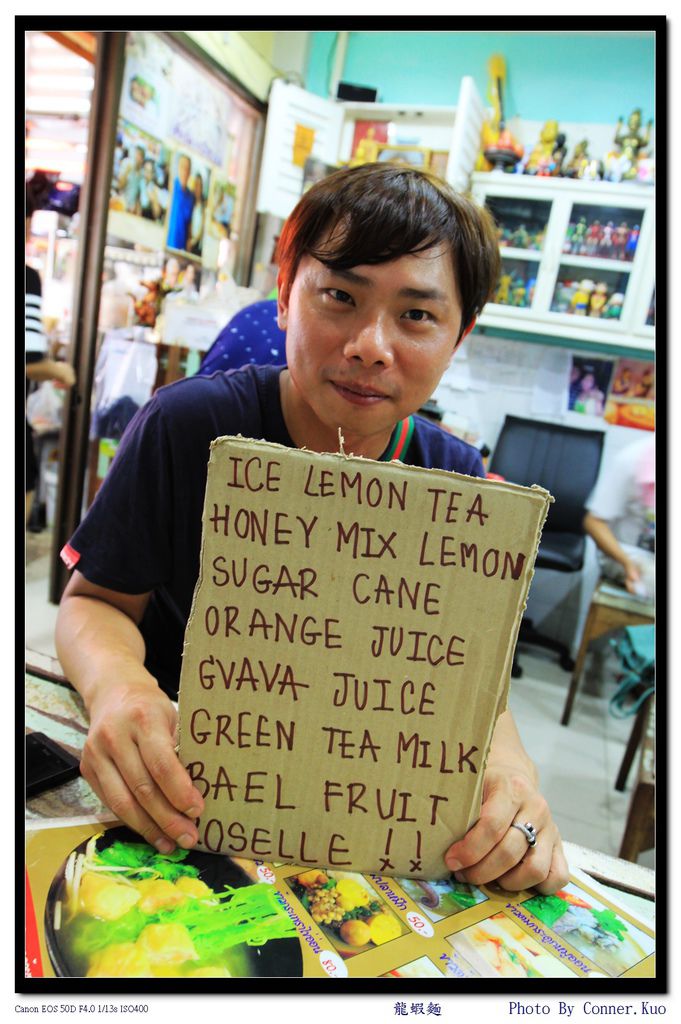 ICE LEMON TEA
HONEY MIX LEMON
SUGAR CANE
ORANGE JUICE
GVAVA JUICE
GREEN TEA MILK
BAEL FRUIT
ROSELLE !!
50.-
50.-
80.-
Canon EOS 50D F4.0 1/13s ISO400
龍蝦麵
Photo By Conner.Kuo